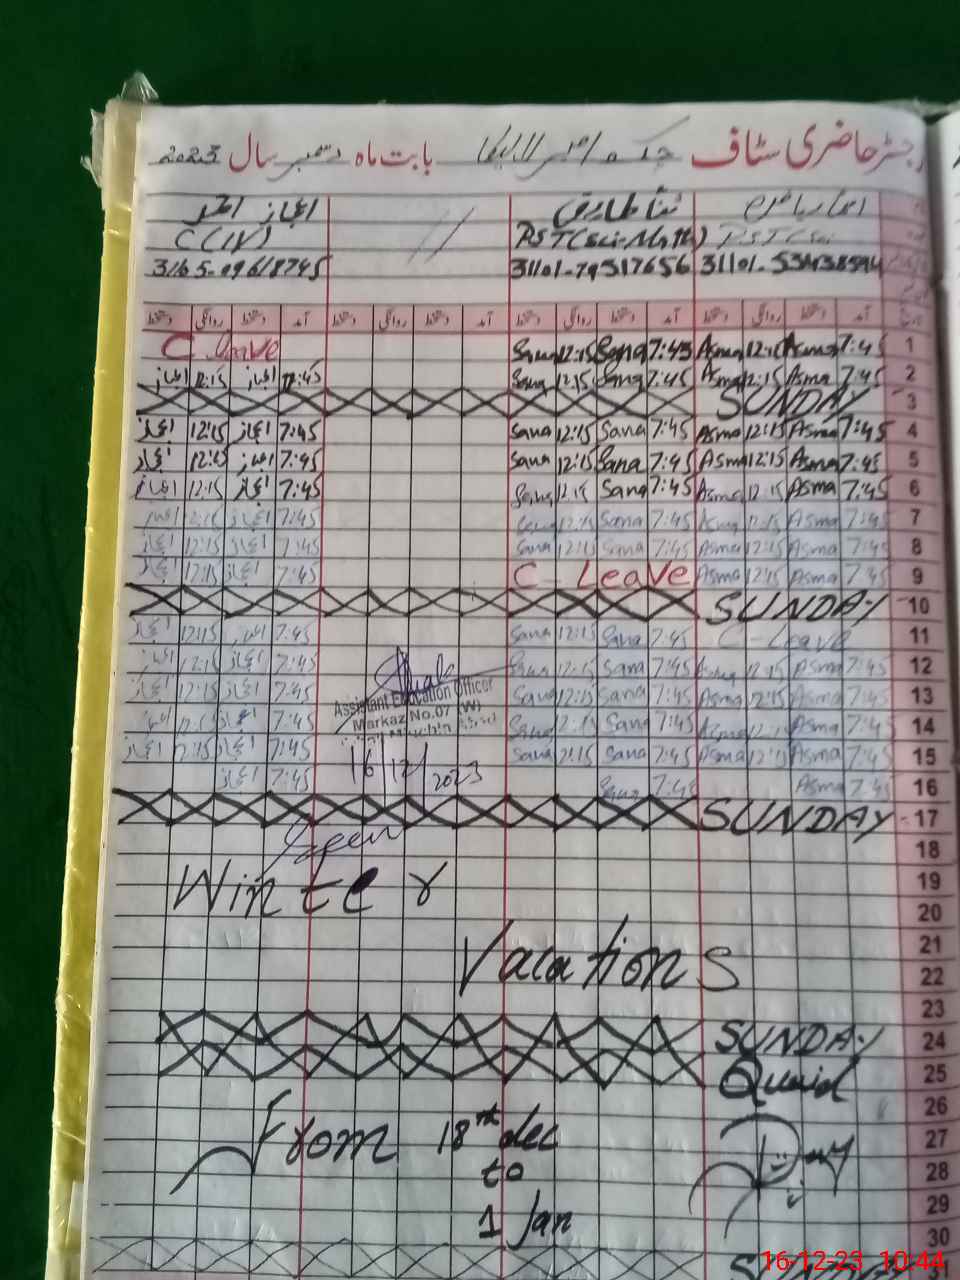 رجسٹر حاضری سٹاف بابت ماہ دسمبر سال 2023
ثنا طارق اعجاز احمد
PST (Sci-Math) C (IV)
آمد دستخط روانگی دستخط آمد دستخط روانگی دستخط آمد دستخط روانگی دستخط
C leave Sana 12:15 Sana 7:45 Asma 12:15 Asma 7:45 1
اعجاز 12:15 اعجاز 7:45 Sana 12:15 Sana 7:45 Asma 12:15 Asma 7:45 2
SUNDAY 3
اعجاز 12:15 اعجاز 7:45 Sana 12:15 Sana 7:45 Asma 12:15 Asma 7:45 4
اعجاز 12:15 اعجاز 7:45 Sana 12:15 Sana 7:45 Asma 12:15 Asma 7:45 5
اعجاز 12:15 اعجاز 7:45 Sana 12:15 Sana 7:45 Asma 12:15 Asma 7:45 6
اعجاز 12:15 اعجاز 7:45 Sana 12:15 Sana 7:45 Asma 12:15 Asma 7:45 7
اعجاز 12:15 اعجاز 7:45 Sana 12:15 Sana 7:45 Asma 12:15 Asma 7:45 8
اعجاز 12:15 اعجاز 7:45 C - Leave Asma 12:15 Asma 7:45 9
SUNDAY 10
اعجاز 12:15 اعجاز 7:45 Sana 12:15 Sana 7:45 C - Leave 11
اعجاز 12:15 اعجاز 7:45 Sana 12:15 Sana 7:45 Asma 12:15 Asma 7:45 12
اعجاز 12:15 اعجاز 7:45 Sana 12:15 Sana 7:45 Asma 12:15 Asma 7:45 13
اعجاز 12:15 اعجاز 7:45 Sana 12:15 Sana 7:45 Asma 12:15 Asma 7:45 14
اعجاز 12:15 اعجاز 7:45 Sana 12:15 Sana 7:45 Asma 12:15 Asma 7:45 15
اعجاز 7:45 Sana 7:45 Asma 7:45 16
Assistant Education Officer
Markaz No.07 (W)
16/12/2023
SUNDAY 17
18
Winter 19
20
21
Vacations 22
23
SUNDAY 24
Quaid 25
26
From 18 dec Day 27
to 28
1 Jan 29
30
16-12-23 10:44